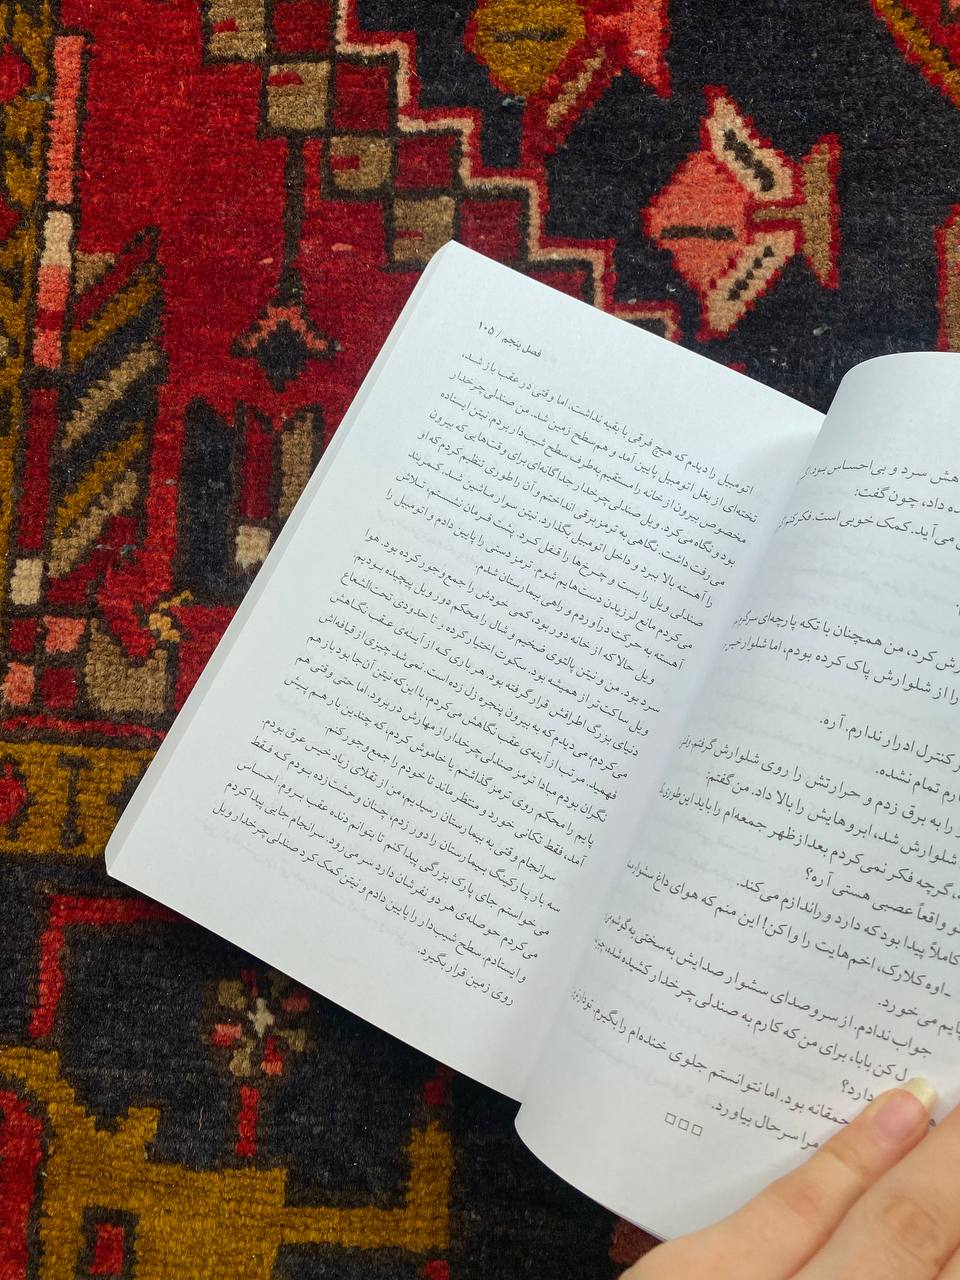 هش سرد و بی‌احساس بود
ه داد، چون گفت:
می‌آید. کمک خوبی است. فکر کنم
ش کرد، من همچنان با تکه پارچه‌ای
را از شلوارش پاک کرده بودم، اما شلوار
کنترل ادرار ندارم. آره.
تمام نشده.
را به برق زدم و حرارتش را روی شلوارش گرفتم.
شلوارش شد، ابروهایش را بالا داد. من گفتم:
گرچه فکر نمی‌کردم بعدازظهر جمعه‌ام را باید این‌طوری
تو واقعاً عصبی هستی آره؟
کاملاً پیدا بود که دارد وراندازم می‌کند.
ـ اوه کلارک، اخم‌هایت را واکن! این منم که هوای داغ سشوار
یایم می‌خورد.
جواب ندادم. از سروصدای سشوار صدایش به سختی به گوشم
ل کن بابا، برای من که کارم به صندلی چرخدار کشیده شده،
دارد؟
حمقانه بود. اما نتوانستم جلوی خنده‌ام را بگیرم.
مرا سرحال بیاورد.
□□□
فصل پنجم / ۱۰۵
اتومبیل را دیدم که هیچ فرقی با بقیه نداشت، اما وقتی در عقب باز شد،
تخته‌ای از بغل اتومبیل پایین آمد و هم‌سطح زمین شد. من صندلی چرخدار
مخصوص بیرون از خانه را مستقیم به‌طرف سطح شیب‌دار بردم. نیتن ایستاده
بود و نگاه می‌کرد. ویل صندلی چرخدار جداگانه‌ای برای وقت‌هایی که بیرون
می‌رفت داشت. نگاهی به ترمز برقی انداختم و آن را طوری تنظیم کردم که او
را آهسته بالا ببرد و داخل اتومبیل بگذارد. نیتن سوار ماشین شد، کمربند
صندلی ویل را بست و چرخ‌ها را قفل کرد. پشت فرمان نشستم، تلاش
می‌کردم مانع لرزیدن دست‌هایم شوم. ترمز دستی را پایین دادم و اتومبیل را
آهسته به حرکت درآوردم و راهی بیمارستان شدم.
ویل حالا که از خانه دور بود، کمی خودش را جمع‌وجور کرده بود. هوا
سرد بود. من و نیتن پالتوی ضخیم و شال را محکم دور ویل پیچیده بودیم.
ویل ساکت‌تر از همیشه بود. سکوت اختیار کرده و تا حدودی تحت‌الشعاع
دنیای بزرگ اطرافش قرار گرفته بود. هر باری که از آینه‌ی عقب نگاهش
می‌کردم، می‌دیدم که به بیرون پنجره زل زده است. نمی‌شد چیزی از قیافه‌اش
فهمید. مرتب از آینه‌ی عقب نگاهش می‌کردم، با این‌که نیتن آن‌جا بود باز هم
نگران بودم مبادا ترمز صندلی چرخدار از مهارش در برود. اما حتی وقتی هم
پایم را محکم روی ترمز گذاشتم یا خاموش کردم، که چندین بار هم پیش
آمد، فقط تکانی خورد و منتظر ماند تا خودم را جمع‌وجور کنم.
سرانجام وقتی به بیمارستان رسیدیم، من از تقلای زیاد خیس عرق بودم.
سه بار پارکینگ بیمارستان را دور زدم، چنان وحشت‌زده بودم که فقط
می‌خواستم جای پارک بزرگی پیدا کنم تا بتوانم دنده عقب بروم. احساس
می‌کردم حوصله‌ی هر دو نفرشان دارد سر می‌رود. سرانجام جایی پیدا کردم
و ایستادم. سطح شیب‌دار را پایین دادم و نیتن کمک کرد صندلی چرخدار ویل
روی زمین قرار بگیرد.